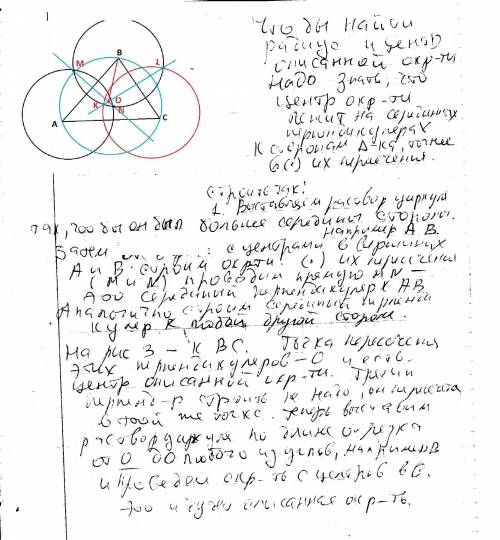 1
B
M
L
K
O
N
A
C
Что бы найти
радиус и центр
описанной окр-ти
надо знать, что
центр окр-ти
лежит на серединных
перпендикулярах
к сторонам Δ-ка, точнее
в (•) их пересечения.
Строить так:
1. Выставляем раствор циркуля
так, что бы он был больше середины стороны.
например AB.
Затем с центрами в вершинах
A и B строим окр-ти. (•) их пересечения
(M и N) проводим прямую MN –
это серединный перпендикуляр к AB.
Аналогично строим серединный перпенди
куляр к любой другой стороне.
На рис 3 – к BC. Точка пересечения
этих перпендикуляров – O и есть
центр описанной окр-ти. Третий
перпенд-р строить не надо, он пересечёт
в той же точке. Теперь выставим
раствор циркуля по длине отрезка
от O до любого из углов, например B
и проведём окр-ть с центром в O.
Это и будет описанная окр-ть.